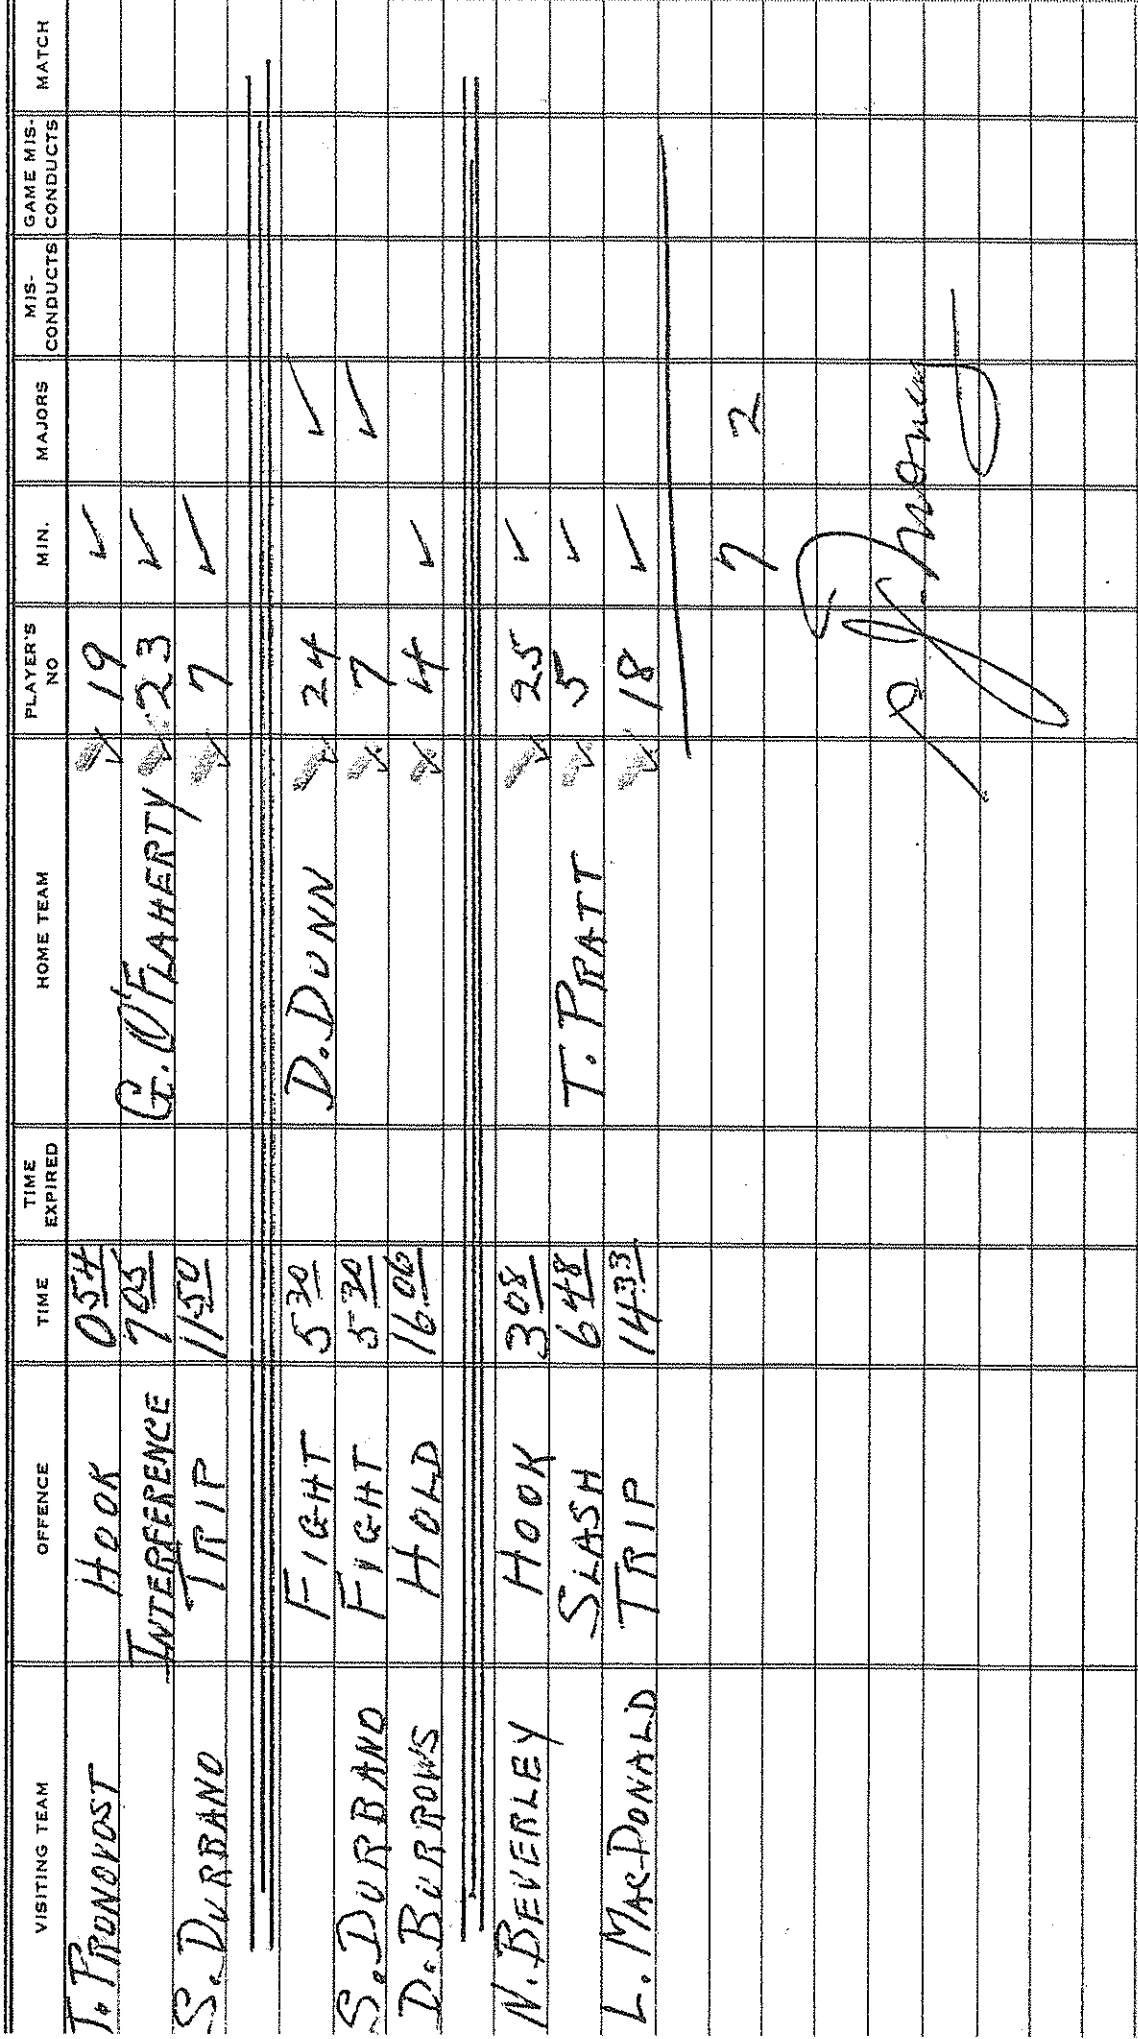 VISITING TEAM OFFENCE TIME TIME EXPIRED HOME TEAM PLAYER'S NO MIN. MAJORS MIS-CONDUCTS GAME MIS-CONDUCTS MATCH
J. PRONOVOST HOOK 0 54 19 ✓
INTERFERENCE 7 05 G. O'FLAHERTY 23 ✓
S. DURBANO TRIP 11 50 7 ✓
FIGHT 5 30 D. DUNN 24 ✓
S. DURBANO FIGHT 5 30 7 ✓
D. BURROWS HOLD 16 06 4 ✓
N. BEVERLEY HOOK 3 08 25 ✓
SLASH 6 48 T. PRATT 5 ✓
L. MACDONALD TRIP 14 33 18 ✓
7 2